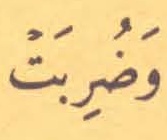 وَضُرِبَتْ